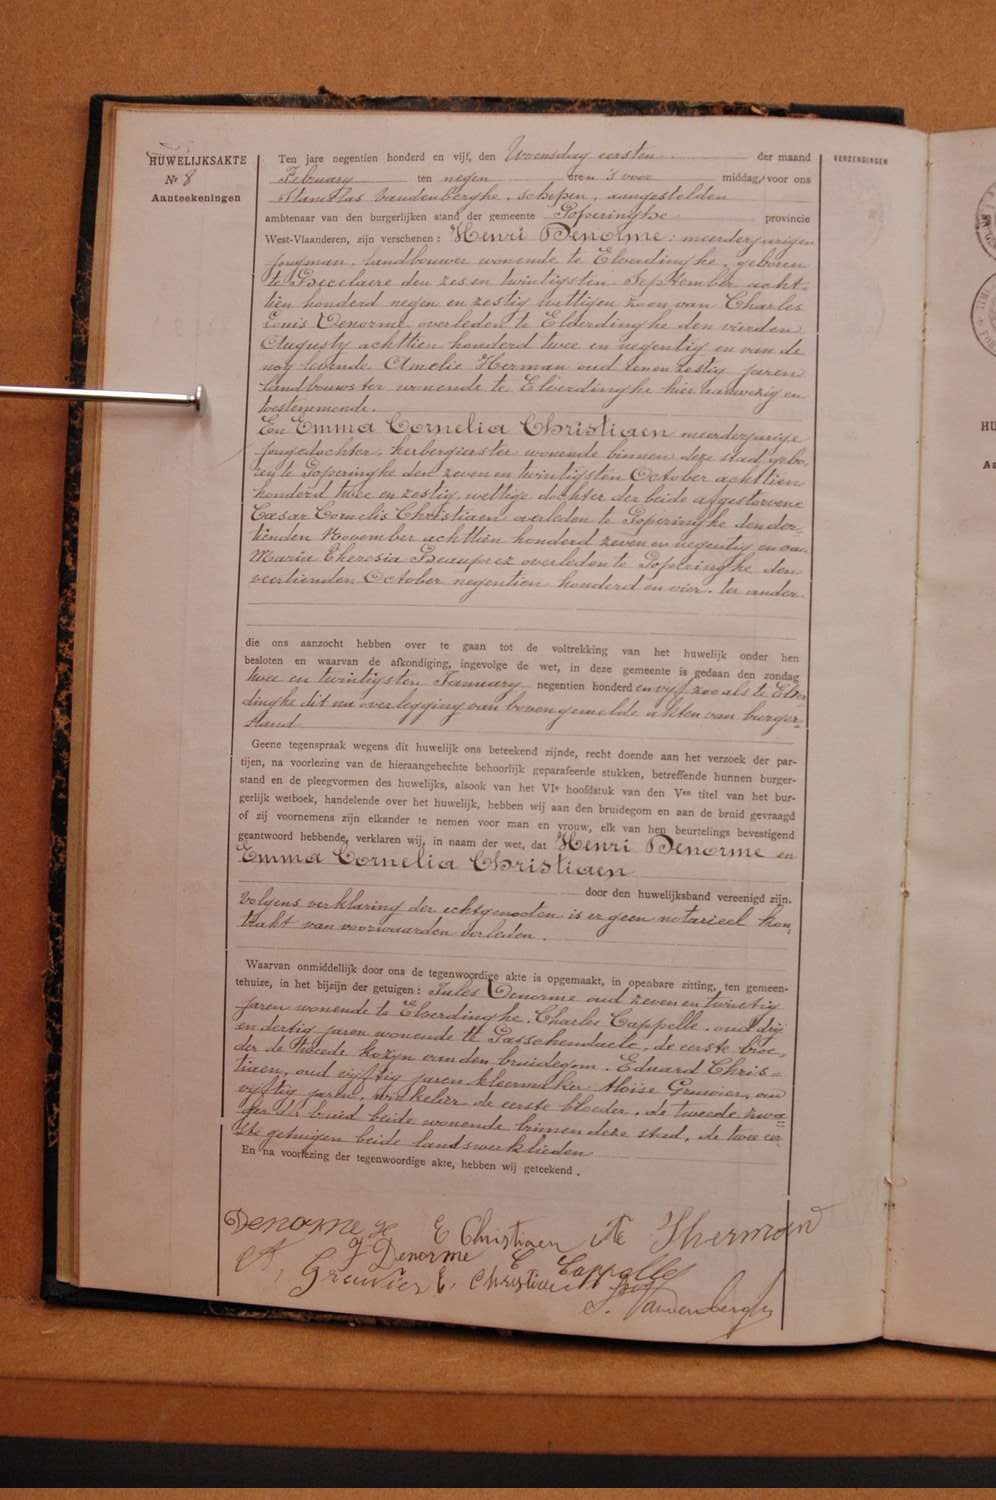 HUWELIJKSAKTE
Nr 8
Aanteekeningen
VERZENDINGEN
Ten jare negentien honderd en vijf, den Woensdag eersten der maand
February ten negen uren 's voor middag, voor ons
Stanislas Vandenberghe, schepen, aangestelden
ambtenaar van den burgerlijken stand der gemeente Poperinghe provincie
West-Vlaanderen, zijn verschenen: Henri Denorme: meerderjarigen
jongman, landbouwer wonende te Elverdinghe, geboren
te Becelaere den zes en twintigsten September acht-
tien honderd negen en zestig wettigen zoon van Charles
Louis Denorme overleden te Elverdinghe den vierden
Augusty achttien honderd twee en negentig en van de
nog levende Amelie Herman oud een en zestig jaren
landbouwster wonende te Elverdinghe hier aanwezig en
toestemmende.
En Emma Cornelia Christiaen meerderjarige
jongedochter, herbergierster wonende binnen deze stad gebo-
ren te Poperinghe den zeven en twintigsten October achttien
honderd twee en zestig wettige dochter der beide afgestorvene
Cæsar Cornelis Christiaen overleden te Poperinghe den der-
tienden November achttien honderd zeven en negentig en van
Maria Theresia Beauprez overleden te Poperinghe den
veertienden October negentien honderd en vier. ter ander
die ons aanzocht hebben over te gaan tot de voltrekking van het huwelijk onder hen
besloten en waarvan de afkondiging, ingevolge de wet, in deze gemeente is gedaan den zondag
twee en twintigsten January negentien honderd en vijf zoo als te Elver-
dinghe dit na overlegging van bovengemelde akten van burger-
stand
Geene tegenspraak wegens dit huwelijk ons beteekend zijnde, recht doende aan het verzoek der par-
tijen, na voorlezing van de hieraangehechte behoorlijk geparafeerde stukken, betreffende hunnen burger-
stand en de pleegvormen des huwelijks, alsook van het VIe hoofdstuk van den Ven titel van het bur-
gerlijk wetboek, handelende over het huwelijk, hebben wij aan den bruidegom en aan de bruid gevraagd
of zij voornemens zijn elkander te nemen voor man en vrouw, elk van hen beurtelings bevestigend
geantwoord hebbende, verklaren wij, in naam der wet, dat Henri Denorme en
Emma Cornelia Christiaen
door den huwelijksband vereenigd zijn.
Volgens verklaring der echtgenooten is er geen notarieel kon-
trakt van voorwaarden verleden.
Waarvan onmiddellijk door ons de tegenwoordige akte is opgemaakt, in openbare zitting, ten gemeen-
tehuize, in het bijzijn der getuigen: Jules Denorme oud zeven en twintig
jaren wonende te Elverdinghe, Charles Cappelle, oud drij
en dertig jaren wonende te Passchendaele, de eerste broe-
der de tweede kozijn van den bruidegom, Eduard Chris-
tiaen, oud vijftig jaren kleermaker Aloïse Gruwier, oud
vijftig jaren, winkelier de eerste bloeder, de tweede zwa-
ger der bruid beide wonende binnen deze stad, de twee eer
ste getuigen beide landswerklieden
En na voorlezing der tegenwoordige akte, hebben wij geteekend.
Denorme H E Christiaen Herman
J Denorme C Cappelle
A, Gruwier E, Christiaen
S. Vandenberghe